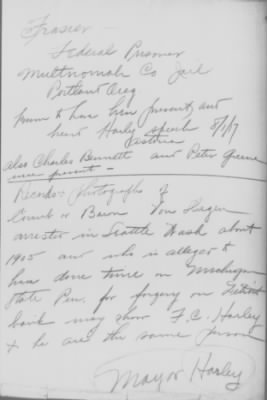 Frasier
Federal Prisoner
Multnomah Co Jail
Portland Oreg
to have been present and
heard Harley speech 8/1/17
Astoria
also Charles Bennett and Peter Greene
were present -
Records & photographs of
Count or Baron Von Hagen
arrested in Seattle Wash about
1905 and who is alleged to
have done time in Michigan
State Pen. for forgery on Detroit
bank may show F.C. Harley
& he are the same person
Mayor Harley